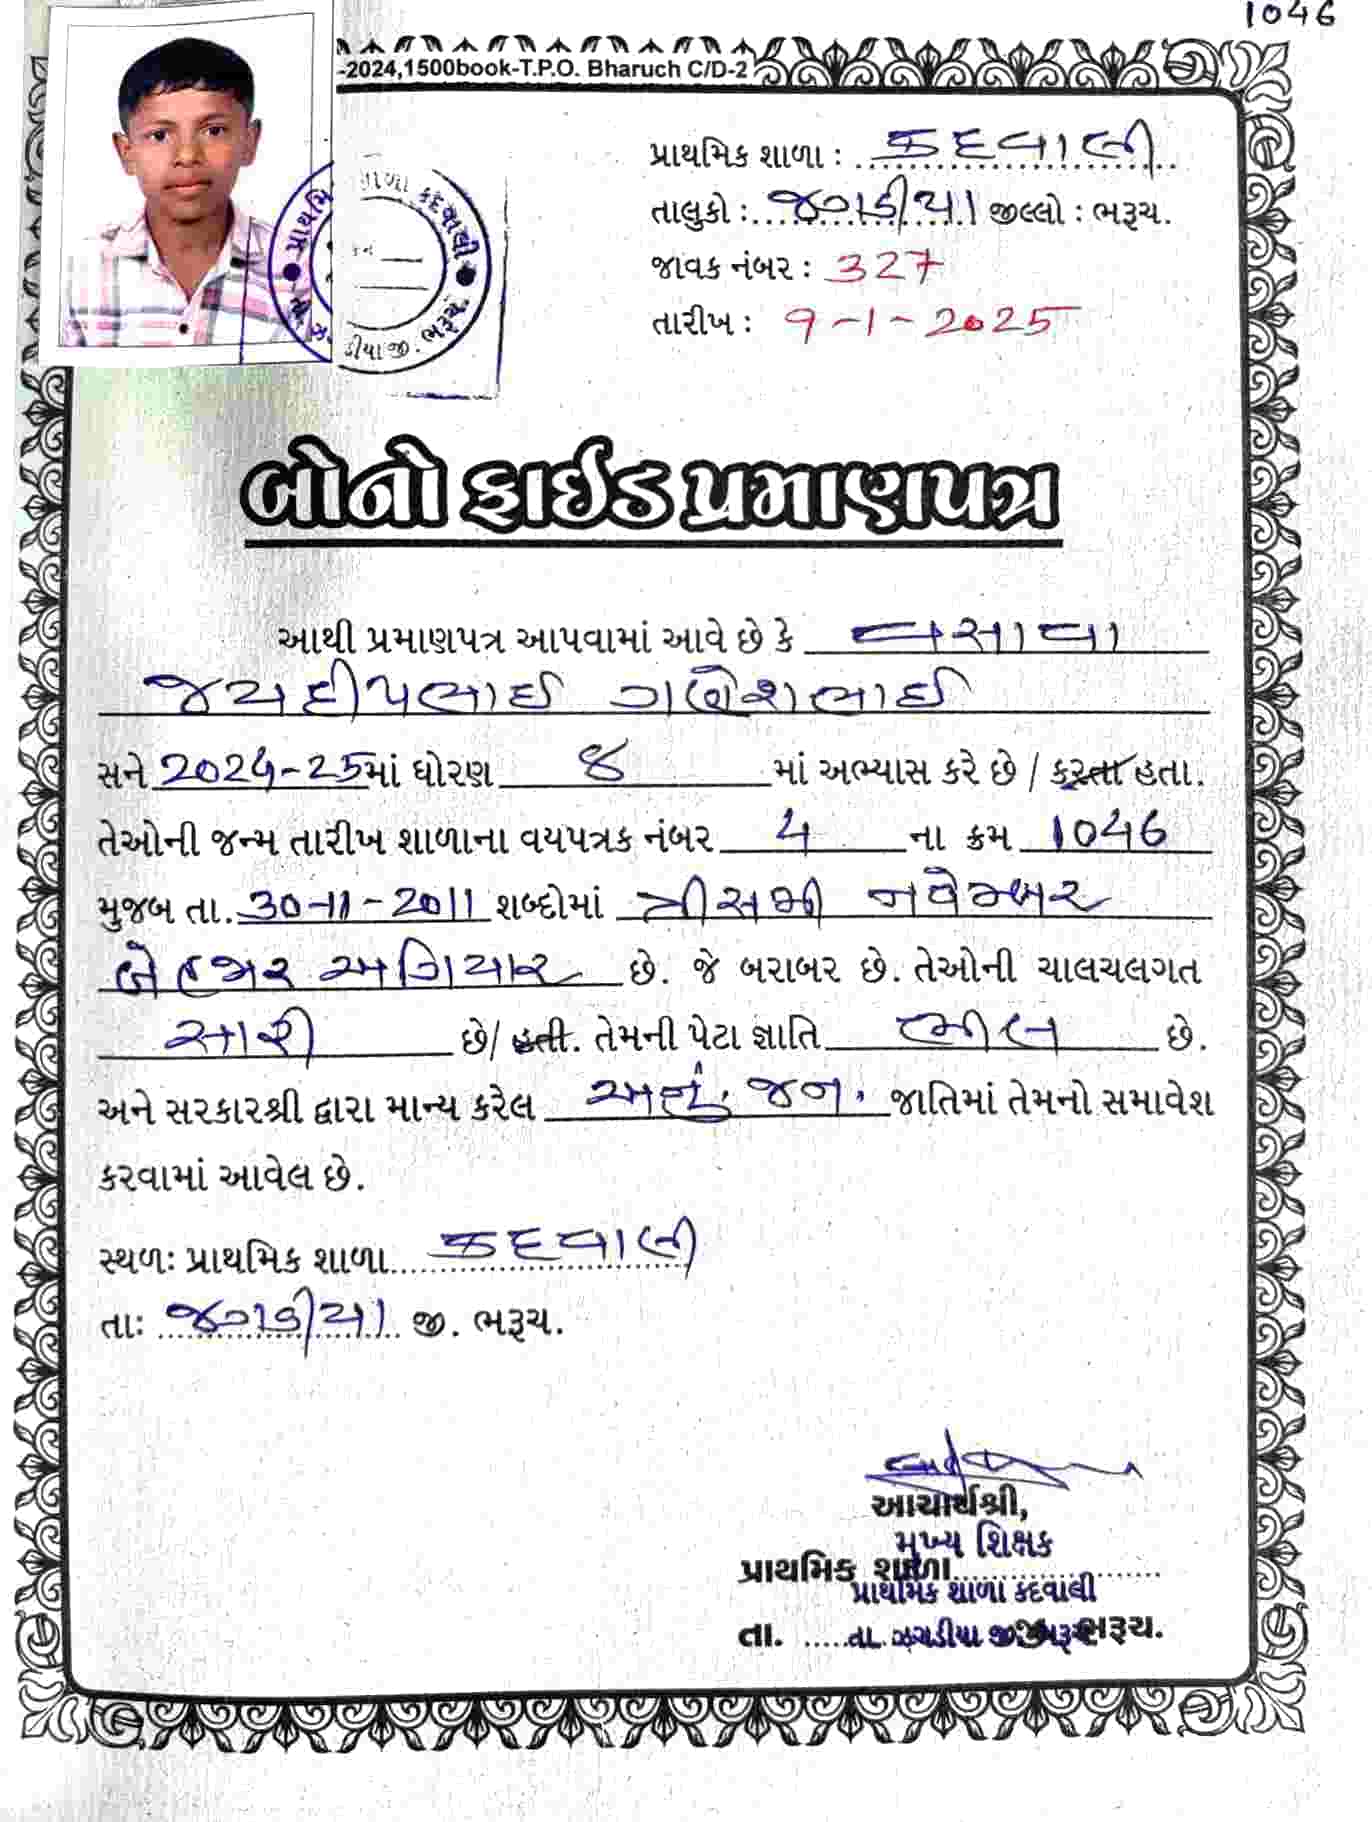 1046
-2024,1500book-T.P.O. Bharuch C/D-2
પ્રાથમિક શાળા : કદવાલી
તાલુકો : ઝગડીયા જીલ્લો : ભરૂચ.
જાવક નંબર : 327
તારીખ : 9-1-2025
બોનોફાઈડ પ્રમાણપત્ર
આથી પ્રમાણપત્ર આપવામાં આવે છે કે વસાવા
જયદીપભાઈ ગણેશભાઈ
સને 2024-25માં ધોરણ ૪ માં અભ્યાસ કરે છે / કરતા હતા.
તેઓની જન્મ તારીખ શાળાના વયપત્રક નંબર 4 ના ક્રમ 1046
મુજબ તા. 30-11-2011 શબ્દોમાં ત્રીસમી નવેમ્બર
બે હજાર અગિયાર છે. જે બરાબર છે. તેઓની ચાલચલગત
સારી છે/ હતી. તેમની પેટા જ્ઞાતિ ભીલ છે.
અને સરકારશ્રી દ્વારા માન્ય કરેલ અનું. જન. જાતિમાં તેમનો સમાવેશ
કરવામાં આવેલ છે.
સ્થળઃ પ્રાથમિક શાળા કદવાલી
તાઃ ઝગડીયા જી. ભરૂચ.
આચાર્યશ્રી,
મુખ્ય શિક્ષક
પ્રાથમિક શાળા
પ્રાથમિક શાળા કદવાલી
તા. તા. ઝઘડીયા જી. ભરૂચ.